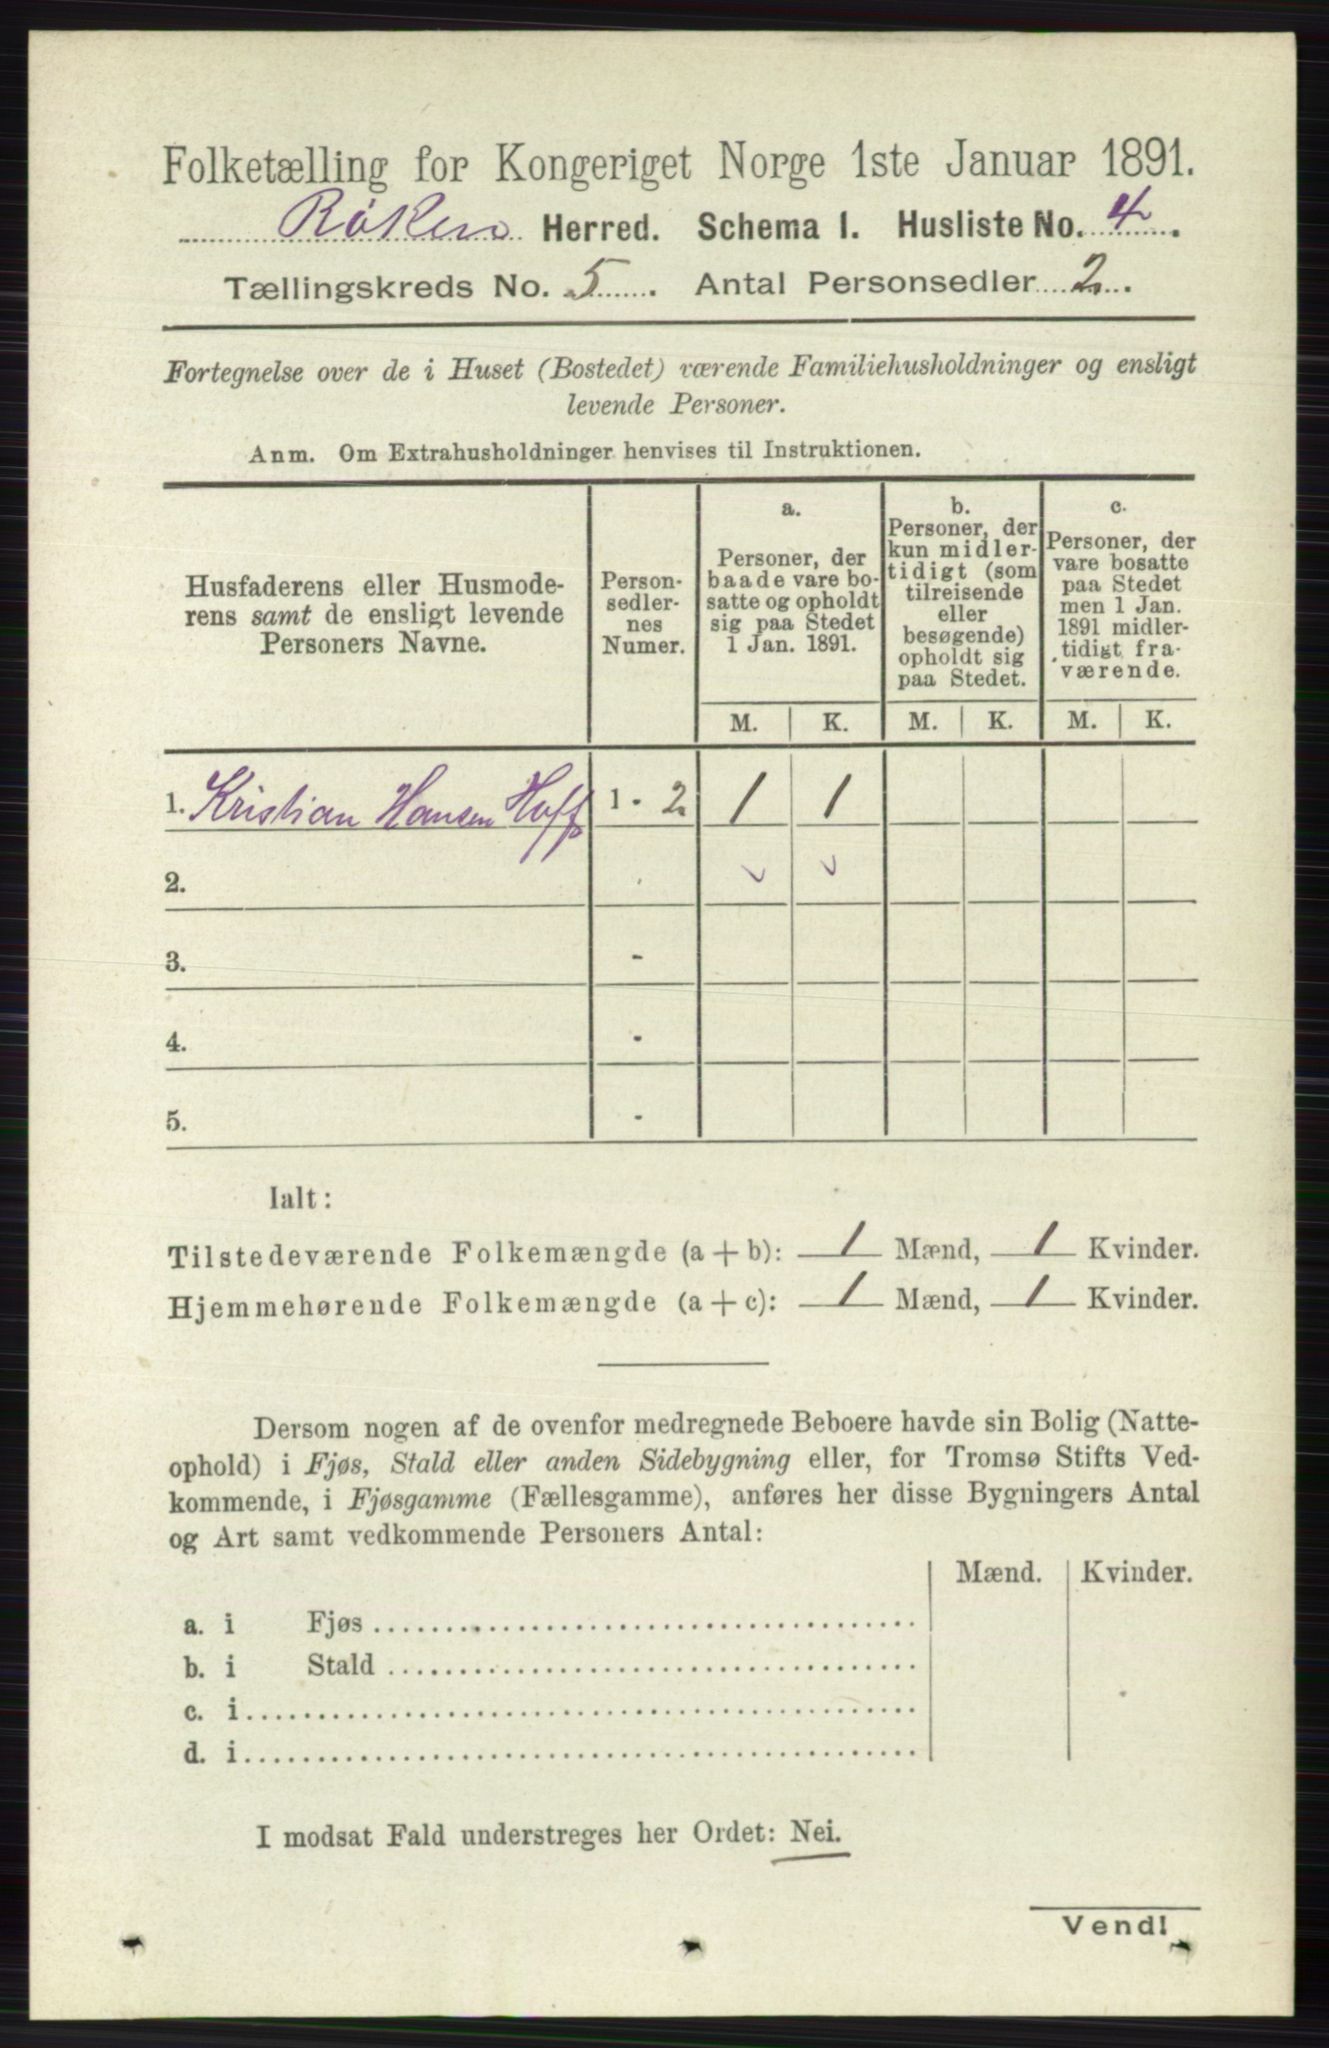 Folketælling for Kongeriget Norge 1ste Januar 1891.
Røken Herred. Schema 1. Husliste No. 4.
Tællingskreds No. 5. Antal Personsedler 2.
Fortegnelse over de i Huset (Bostedet) værende Familiehusholdninger og ensligt
levende Personer.
Anm. Om Extrahusholdninger henvises til Instruktionen.
Husfaderens eller Husmode-
rens samt de ensligt levende
Personers Navne.
Person-
sedler-
nes
Numer.
a.
Personer, der
baade vare bo-
satte og opholdt
sig paa Stedet
1 Jan. 1891.
b.
Personer, der
kun midler-
tidigt (som
tilreisende
eller
besøgende)
opholdt sig
paa Stedet.
c.
Personer, der
vare bosatte
paa Stedet
men 1 Jan.
1891 midler-
tidigt fra-
værende.
M. K. M. K. M. K.
1. Kristian Hansen Hoff 1 - 2 1 1
2.
3. -
4. -
5. -
Ialt:
Tilstedeværende Folkemængde (a + b): 1 Mænd, 1 Kvinder.
Hjemmehørende Folkemængde (a + c): 1 Mænd, 1 Kvinder.
Dersom nogen af de ovenfor medregnede Beboere havde sin Bolig (Natte-
ophold) i Fjøs, Stald eller anden Sidebygning eller, for Tromsø Stifts Ved-
kommende, i Fjøsgamme (Fællesgamme), anføres her disse Bygningers Antal
og Art samt vedkommende Personers Antal:
Mænd. Kvinder.
a. i Fjøs
b. i Stald
c. i
d. i
I modsat Fald understreges her Ordet: Nei.
Vend!